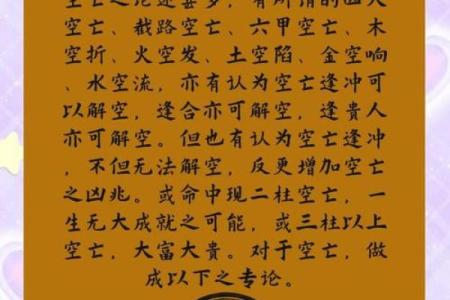 空亡之论述甚多，有所谓的四大
空亡、截路空亡、六甲空亡、木
空折、火空发、土空陷、金空响
、水空流，亦有认为空亡逢冲可
以解空，逢合亦可解空，逢貴人
亦可解空。但也有认为空亡逢冲
，不但无法解空，反更增加空亡
之凶兆。或命中现二柱空亡，一
生无大成就之可能，或三柱以上
空亡，大富大貴。对于空亡，做
成以下之专论。